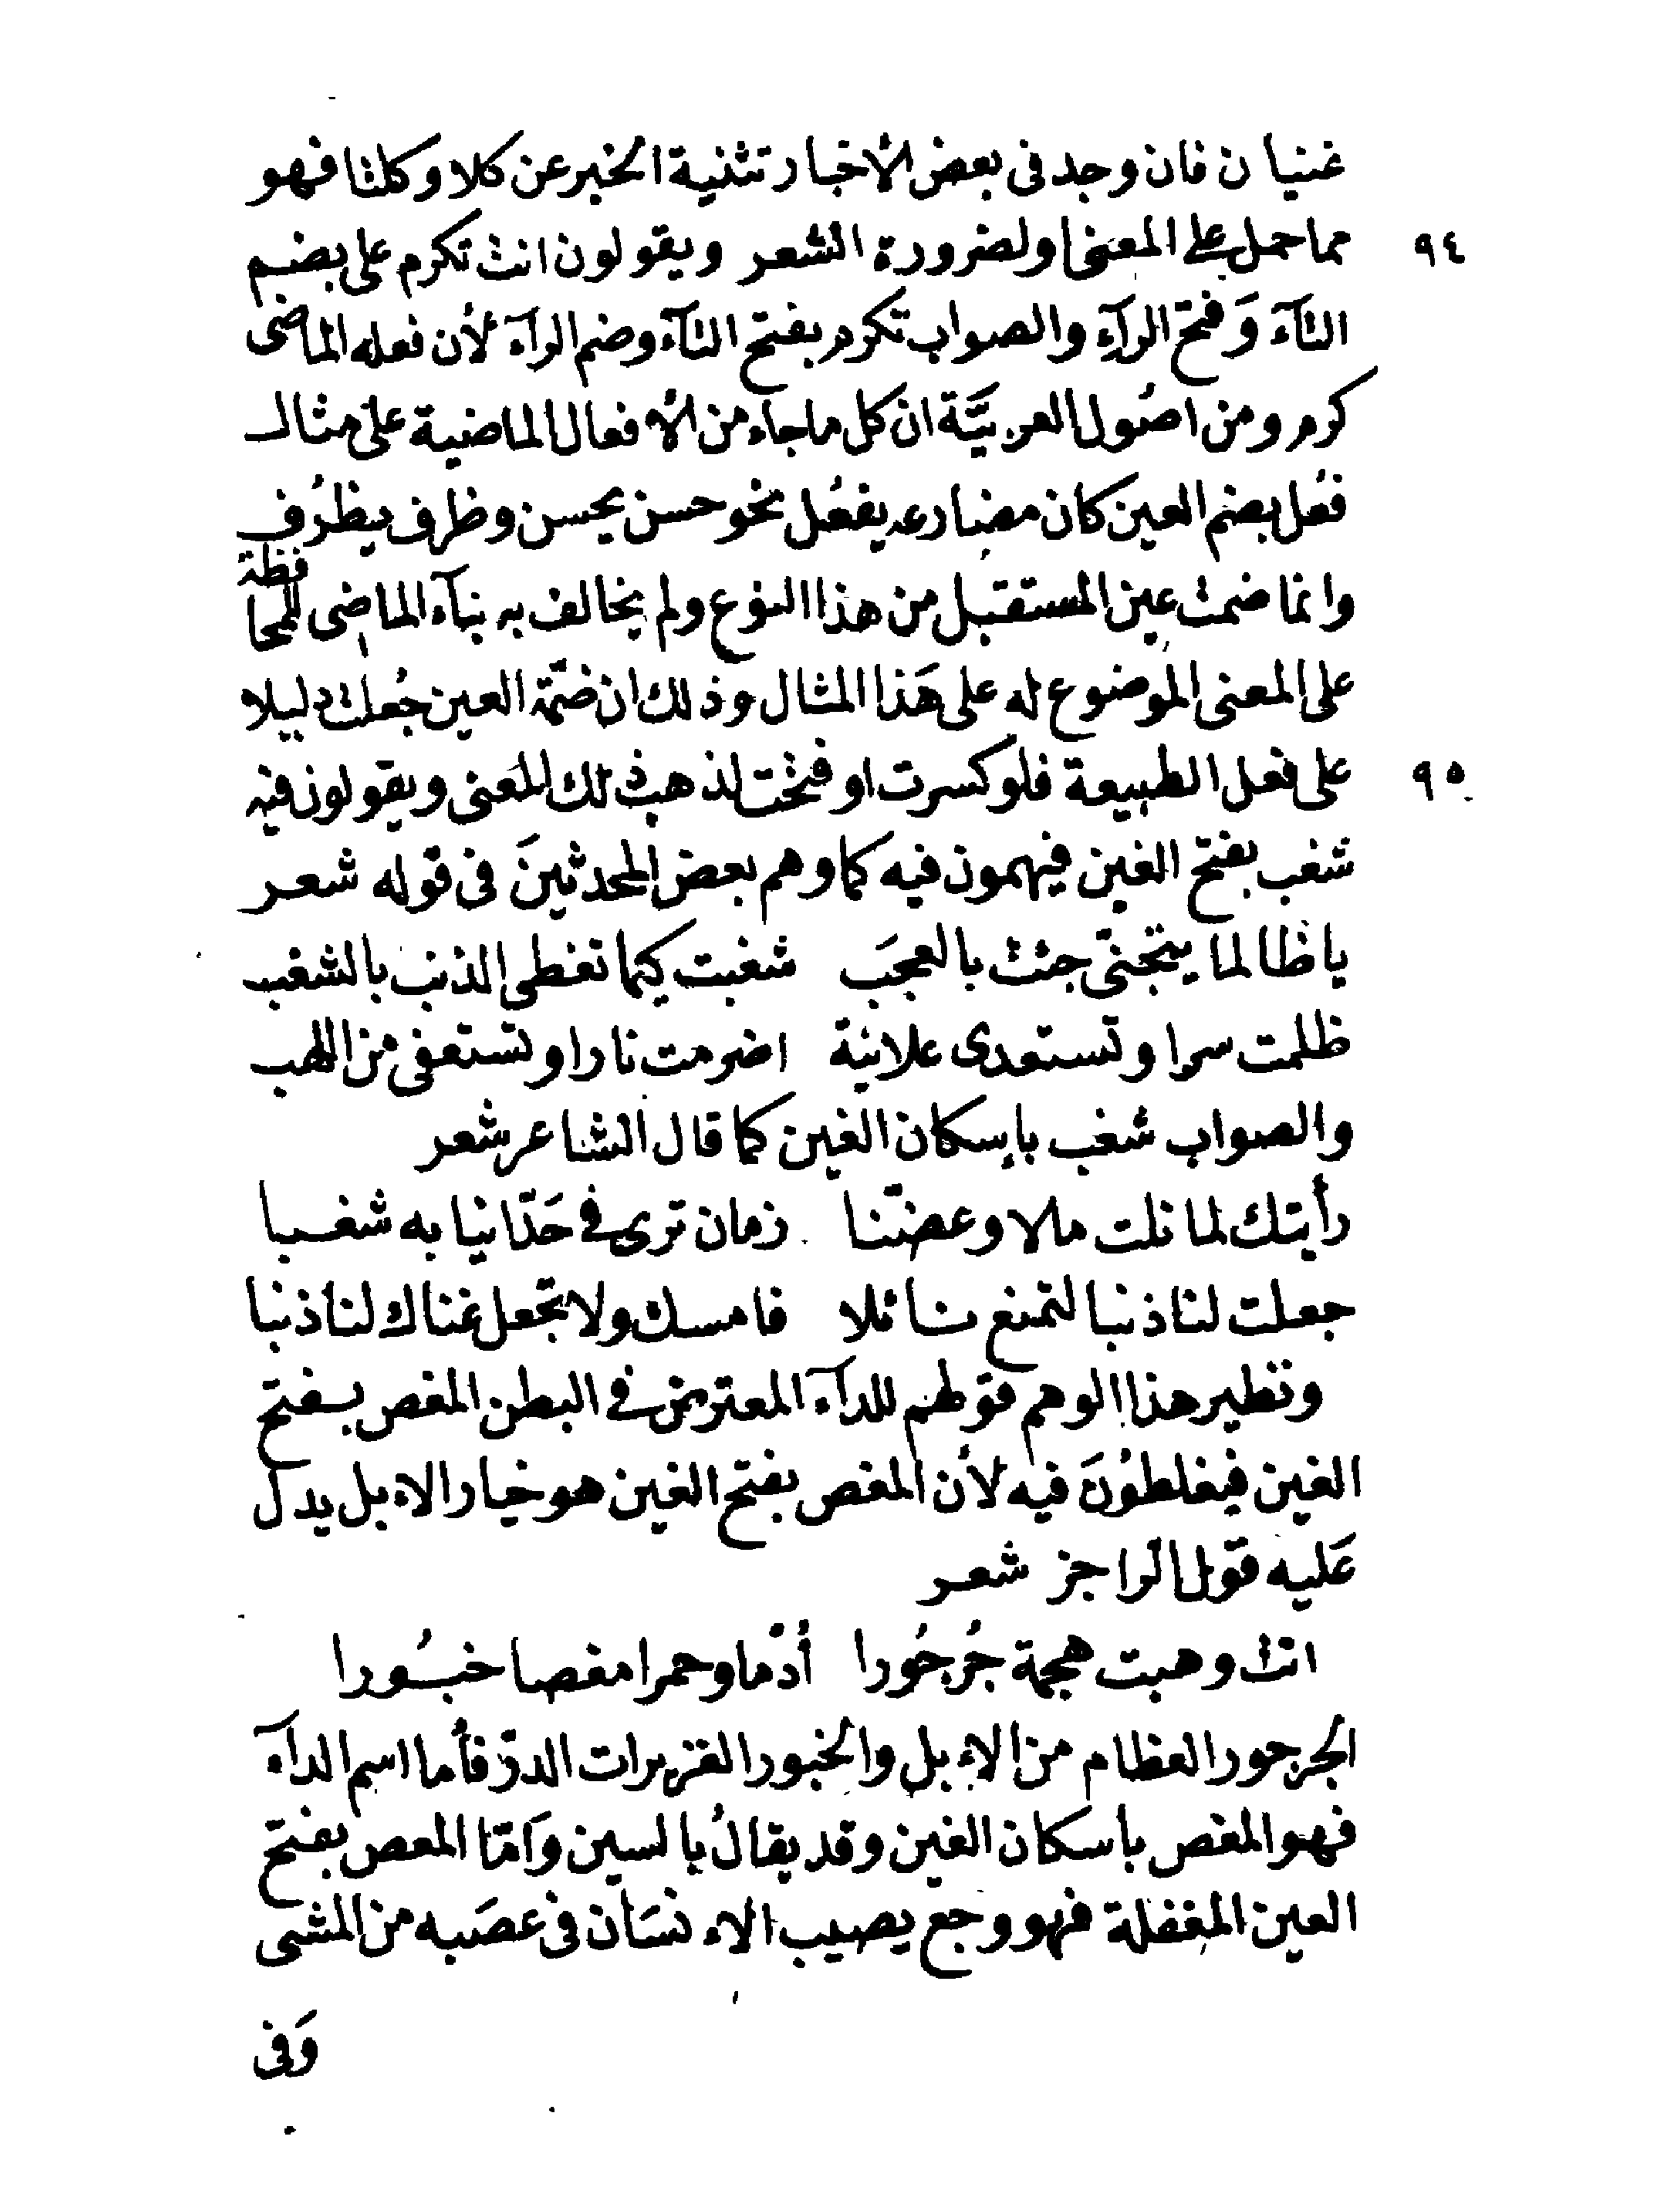 غنيان فان وجد فى بعض الأخبار تثنية الخبر عن كلا وكلتا فهو
٩٤ مما حمل على المعنى او لضرورة الشعر ويقولون انت تكرم على بضم
التآءَ وَفتح الرآءِ والصواب تكرم بفتح التآء وضم الرآء لأن فعله الماضى
كرم ومن اصُول العربيَّة ان كل ما جاء من الأفعال الماضية على مثال
فعُل بضم العين كان مضارعه يفعُل نحو حسن يحسن وظرف يظرُف
وانما ضمت عين المستقبل من هذا النوع ولم يخالف به بنآء الماضى للمحافظة
على المعنى الموضوع له على هَذا المثال وذلك ان ضمّة العين جُعلت دليلا
٩٥ على فعل الطبيعة فلو كسرت او فتحت لذهب ذلك المعنى ويقولون فيه
شغب بفتح الغين فيهمون فيه كما وهم بعض المحدثينَ فى قوله شعر
يا ظالما يتجنى جئت بالعجَب شغبت كيما تغطى الذنب بالشغب
ظلمت سرا وتستعدى علانية اضرمت نارا وتستعفى من اللهب
والصواب شغب بإسكان الغين كما قال الشاعر شعر
رأيتك لما نلت مالا وعضّنا زمان ترى فى حَدّ انيابه شغبا
جعلت لنا ذنبا لتمنع نائلا فامسك ولا تجعل غناك لنا ذنبا
ونظير هذا الوهم قولهم للدآء المعترض فى البطن المغص بفتح
الغين فيغلطوُنَ فيه لأن المغص بفتح الغين هو خيار الإبل يدل
عَليه قول الراجز شعر
انت وهبت هجمة جُرجُورا أدْما وحمرا مغصا خبُورا
الجرجور العظام من الإبل والخبور الغزيرات الدرّ فأما اسم الدآء
فهو المغص باسكان الغين وقد يقالُ بالسين وَامّا المعص بفتح
العين المغفلة فهو وجع يصيب الإنسَان فى عصَبه من المشى
وَفى